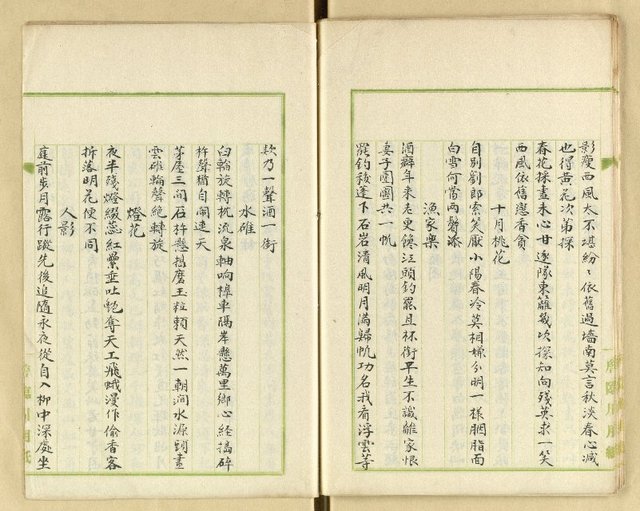 影瘦西風太不堪紛〻依舊過墻南莫言秋淡春心減
也得黃花次弟探
春花採盡未心甘逐隊東籬幾次探知向殘英求一笑
西風依舊戀香龕
十月桃花
自別劉郎索笑厭小陽春冷莫相嫌分明一樣胭脂面
白雪何當兩鬢添
漁家樂
酒癖年來老更饞江頭釣罷且杯銜平生不識離家恨
妻子團圞共一帆
罷釣移篷下石岩清風明月滿歸帆功名我看浮雲等
欸乃一聲酒一銜
水碓
臼輪旋轉枕流泉軸响樟車隔岸懸萬里鄉心經搗碎
杵聲猶自鬧連天
茅屋三間石杵懸舂磨玉粒賴天然一朝澗水源頭畫
雲碓輪聲絕轉旋
燈花
夜半殘燈綴蕊紅纍垂吐艷奪天工飛蛾漫作偷香客
拆落明花便不同
人影
庭前步月露行蹤先後追隨永夜從自入柳中深處坐